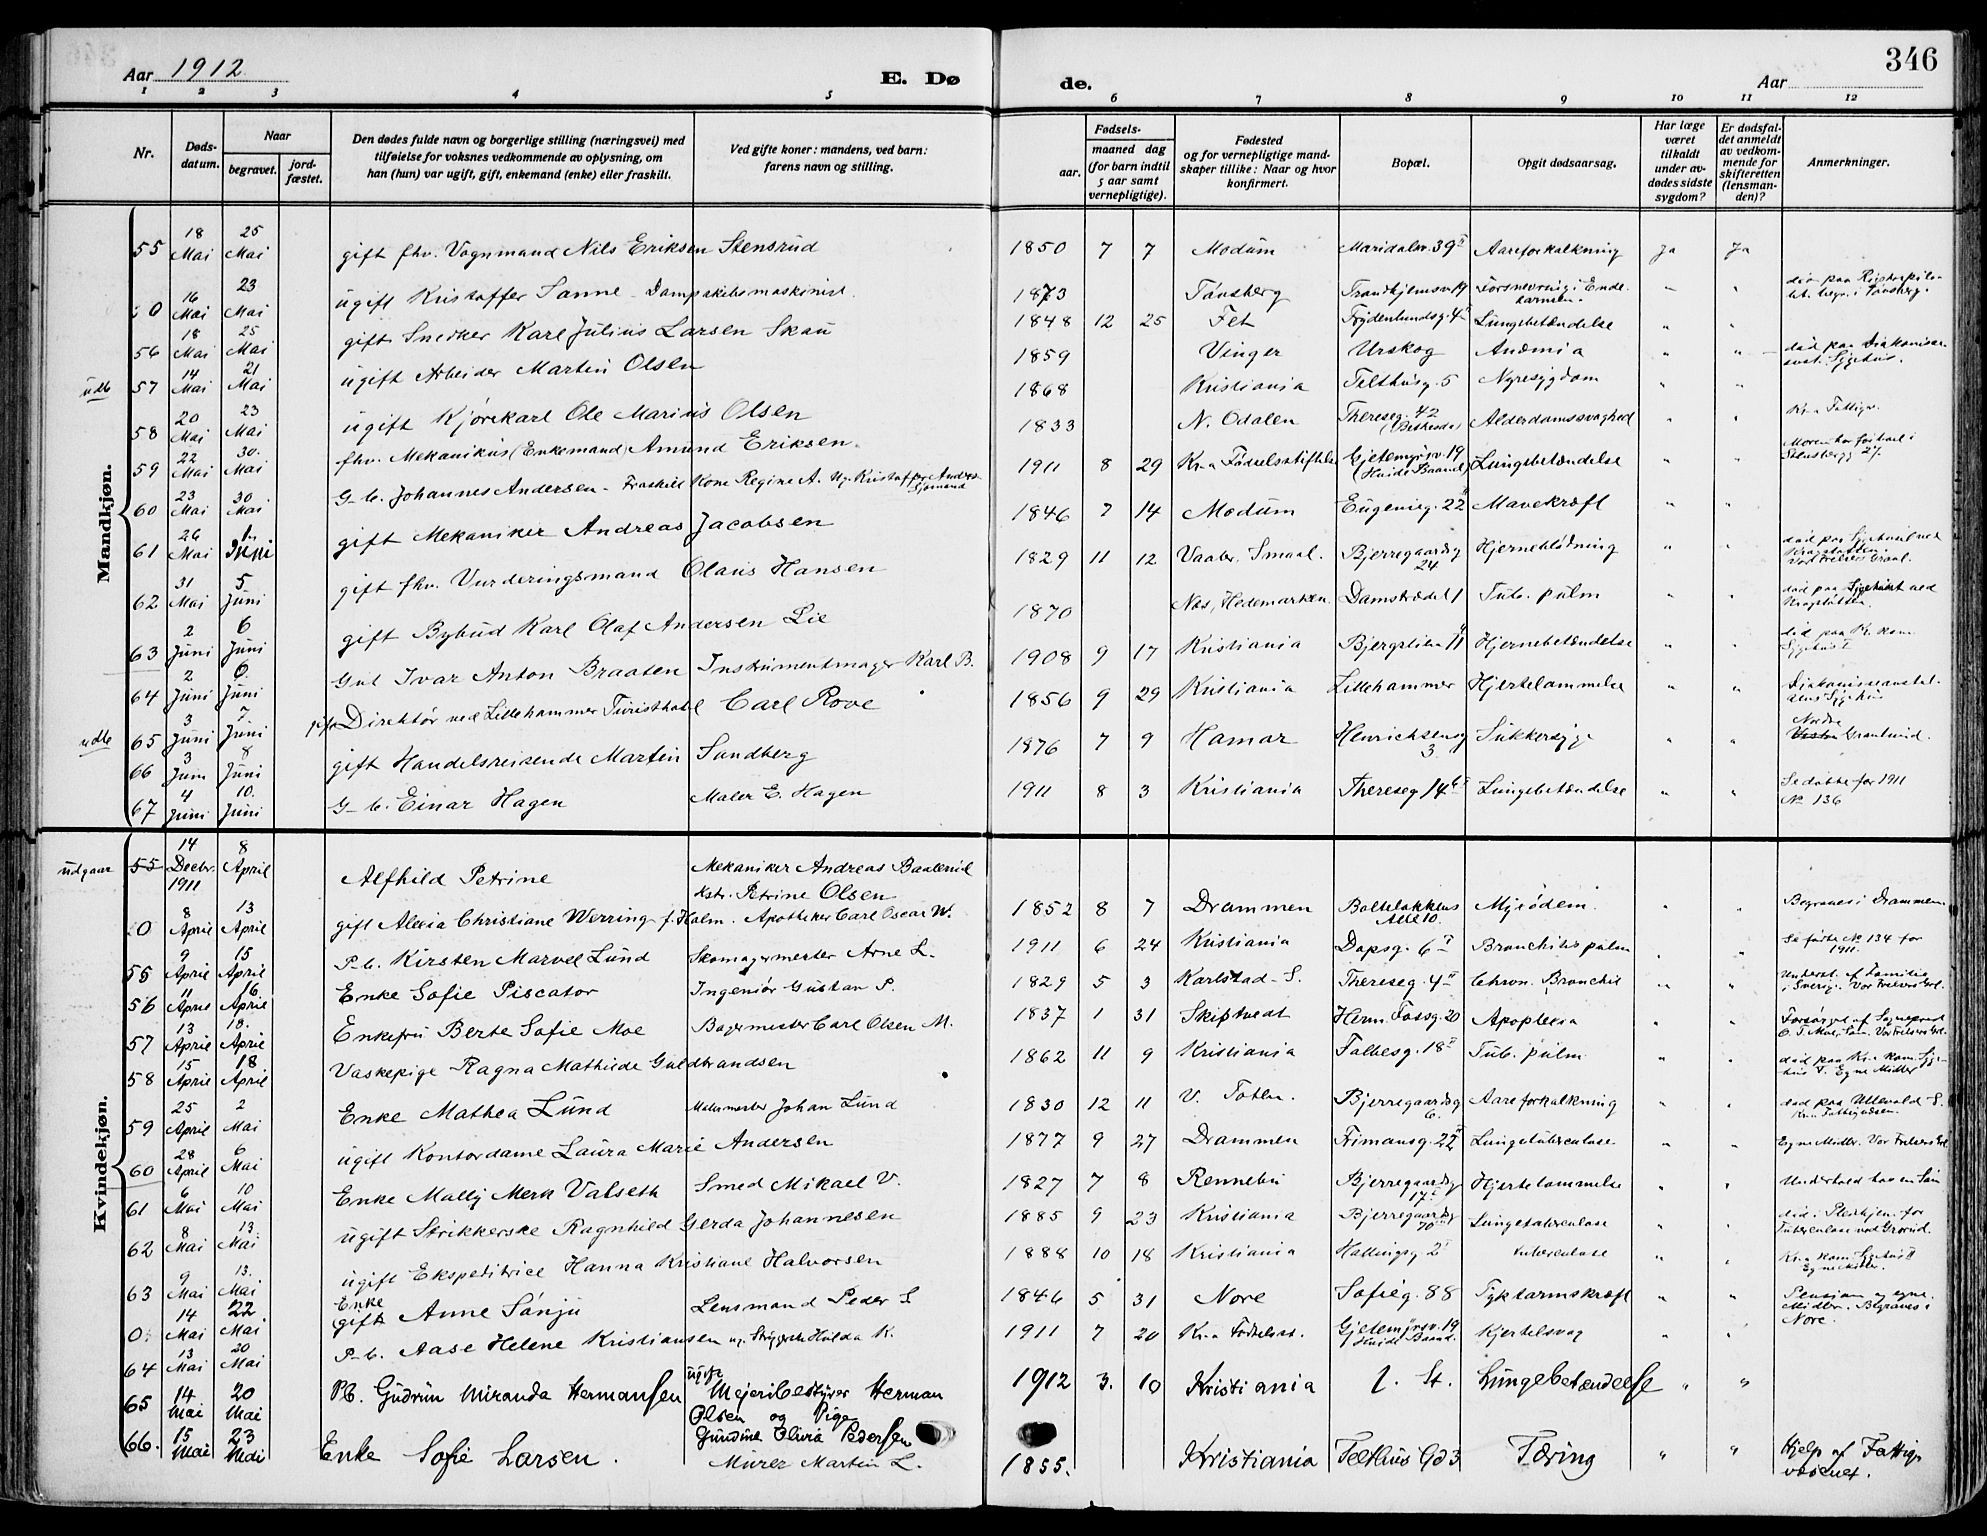 346
Aar 1912
E. Døde.
Aar
1 2 3 4 5 6 7 8 9 10 11 12
Nr.
Døds-datum.
Naar
begravet.
jord-fæstet.
Den dødes fulde navn og borgerlige stilling (næringsvei) med
tilføielse for voksnes vedkommende av oplysning, om
han (hun) var ugift, gift, enkemand (enke) eller fraskilt.
Ved gifte koner: mandens, ved barn:
farens navn og stilling.
Fødsels-
aar.
maaned dag
(for barn indtil
5 aar samt
vernepligtige).
Fødested
og for vernepligtige mand-
skaper tillike: Naar og hvor
konfirmert.
Bopæl.
Opgit dødsaarsag.
Har læge
været
tilkaldt
under av-
dødes sidste
sygdom?
Er dødsfal-
det anmeldt
av vedkom-
mende for
skifteretten
(lensman-
den)?
Anmerkninger.
Mandkjøn.
55 18 Mai 25 Mai gift fhv. Vognmand Nils Eriksen Stensrud 1850 7 7 Modum Maridalsv. 39 II Aareforkalkning Ja Ja
0 16 Mai 23 Mai ugift Kristoffer Sanne - Dampskibsmaskinist. 1873 Tønsberg Trondhjemsv. Forsnevring i Endetarmen. død paa Rigshospitalet. begr. i Tønsberg.
56 18 Mai 25 Mai gift Snedker Karl Julius Larsen Skau 1848 12 25 Fet Frydenlundsg. 4 Lungebetændelse " "
udb 57 14 Mai 21 Mai ugift Arbeider Martin Olsen 1859 Vinger Urskog Anæmia " " død paa Diakonisseanst. Sygehus.
58 20 Mai 23 Mai ugift Kjørekarl Ole Marius Olsen 1868 Kristiania Telthusg. 5 Nyresygdom " "
59 22 Mai 30. Mai fhv. Mekanikus (Enkemand) Amund Eriksen. 1833 N. Odalen Thereseg. 42 (Bethesda) Alderdomssvaghed " " Kr.a Fattigv.
60 23 Mai 30 Mai G-b. Johannes Andersen - Fraskilt Kone Regine A. Ug. Kristoffer Anders. Sjømand 1911 8 29 Kr.a Fødselsstiftelse Gjetemyrsv. 19 Lungebetændelse Moren har fribolig i Stensbergg 27.
61 26 Mai 1. Juni gift Mekaniker Andreas Jacobsen 1846 7 14 Modum Eugenieg. 22 II Mavekræft " "
62 31 Mai 5 Juni gift fhv. Vurderingsmand Olaus Hansen 1829 11 12 Vaaler. Smaal. Bjerregaardsg 24 Hjerneblødning " " død paa Sygehuset ved Krogstøtten. Vor Frelsers Gravl.
63 2 Juni 6 Juni gift Bybud Karl Olaf Andersen Lie 1870 Nes, Hedemarken Damstrædet 1 Tub. pulm " " død paa Sygehuset ved Krogstøtten.
64 2 Juni 6. Juni Gut Ivar Anton Braaten Instrumentmager Karl B. 1908 9 17 Kristiania Bjergslien 11 Hjernebetændelse " " død paa Kr. kom. Sygehus
udb 65 3 Juni 7. Juni gift Direktør ved Lillehammer Turisthotel Carl Rove 1856 9 29 Kristiania Lillehammer Hjertelammelse " " Diakonisseanstaltens Sygehus
66 3 Juni 8 Juni gift Handelsreisende Martin Sandberg 1876 7 9 Hamar Henrichsensg 3 Sukkersyge " " Nordre Vestre Gravlund.
67 4 Juni 10. Juni G-b. Einar Hagen Maler E. Hagen 1911 8 3 Kristiania Thereseg 14 Lungebetændelse " " Se døbte for 1911 No 136
Kvindekjøn.
udgaar 55 14 Decbr. 1911 8 April Alfhild Petrine Mekaniker Andreas Hstr. Petrine Olsen
0 8 April 13 April gift Alexia Christiane Werring f. Holm. Apotheker Carl Oscar W. 1852 8 7 Drammen Bolteløkkens Allé 10. Myxødem. " " Begraves i Drammen
55 9 April 15 April P-b. Kirsten Marvel Lund Skomagermester Arne L. 1911 6 24 Kristiania Dopsg. 6 I Bronchitis pulm " " Se fødte No 134 for 1911.
56 11 April 16 April Enke Sofie Piscator Ingeniør Gustav P. 1829 5 3 Karlstad - S. Thereseg. 4 II Chron. Bronchit " " Underst. af Familie i Sverig. Vor Frelsers Grl.
57 13 April 18. April Enkefru Berte Sofie Moe Bagermester Carl Olsen M. 1837 1 31 Skiptvedt Herm. Fossg. 20 Apoplexia " " Forsørget af Sogneprest C. T. Moe, Søn. Vor Frelsers Grl.
58 15 April 18 April Vaskepige Ragna Mathilde Guldbrandsen 1862 11 9 Kristiania Falbesg. 18 I Tub. pulm " " død paa Kr.a kom. Sygehus I. Egne Midler
59 25 April 2 Mai Enke Mathea Lund Malermester Johan Lund 1830 12 11 V. Toten. Bjerregaardsg 6. Aareforkalkning " " død paa Ullevold S. Kr.a Fattigvæsen.
60 28 April 6 Mai ugift Kontordame Laura Marie Andersen 1877 9 27 Drammen Frimansg. 22 Lungetuberculose " " Egne Midler. Vor Frelsers Grl.
61 6 Mai 10 Mai Enke Mally Merk Valseth Smed Mikael V. 1827 7 8 Rennebu Bjerregaardsg 17 Hjertelammelse " " Underhold hos en Søn
62 8 Mai 13 Mai ugift Strikkerske Ragnhild Gerda Johannesen 1885 9 23 Kristiania Bjerregaardsg 70 Lungetuberculose " " død i Pleiehjem for Tuberculose ved Grorud.
63 9 Mai 13. Mai ugift Ekspeditrice Hanna Kristiane Halvorsen 1888 10 18 Kristiania Hallingsg 2 I tuberculose " " Kr.a kom. Sygehus II Egne Midler.
0 14 Mai 22 Mai Enke gift Anne Sønju Lensmand Peder S. 1846 5 31 Nore Sofieg. 88 Tyktarmskræft " " Pension og egne Midler. Begraves i Nore.
64 13 Mai 20 Mai P-b. Aase Helene Kristiansen ug. Strygerske Hulda K. 1911 7 20 Kr.a Fødselsst. Gjetemyrsv. 19 Kjertelsvag " "
65 14 Mai 20 Mai Pb. Gudrun Miranda Hermansen ugifte Meieribestyrer Herman Olsen og Pige Gundine Olivia Pedersen 1912 3. 10 Kristiania l. St. Lungebetændelse " "
66. 15 Mai 23 Mai Enke Sofie Larsen. Murer Martin L. 1855. Kristiania Telthus Gd 3 Tæring " " Hjelp af Fattigvæsenet.